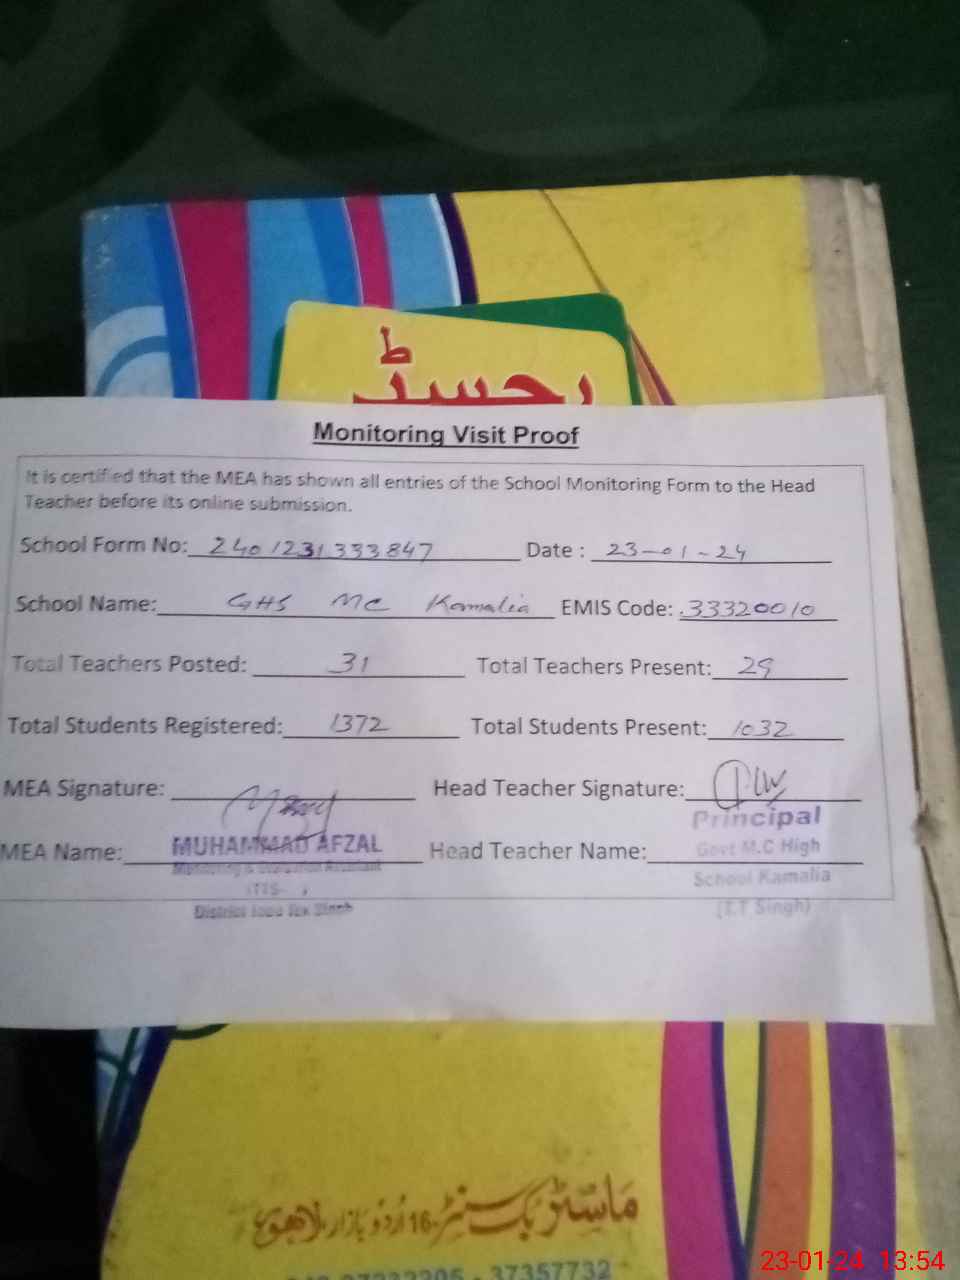 رجسٹر
Monitoring Visit Proof
It is certified that the MEA has shown all entries of the School Monitoring Form to the Head
Teacher before its online submission.
School Form No: 2401231333847 Date : 23-01-24
School Name: GHS MC Kamalia EMIS Code: 33320010
Total Teachers Posted: 31 Total Teachers Present: 29
Total Students Registered: 1372 Total Students Present: 1032
MEA Signature: Head Teacher Signature:
Principal
MEA Name: MUHAMMAD AFZAL Head Teacher Name: Govt M.C High
Monitoring & Evaluation Assistant
School Kamalia
District Toba Tek Singh
(T.T Singh)
ماسٹر بک سنٹر 16-اُردُو بازار، لاہور
37357732
23-01-24 13:54